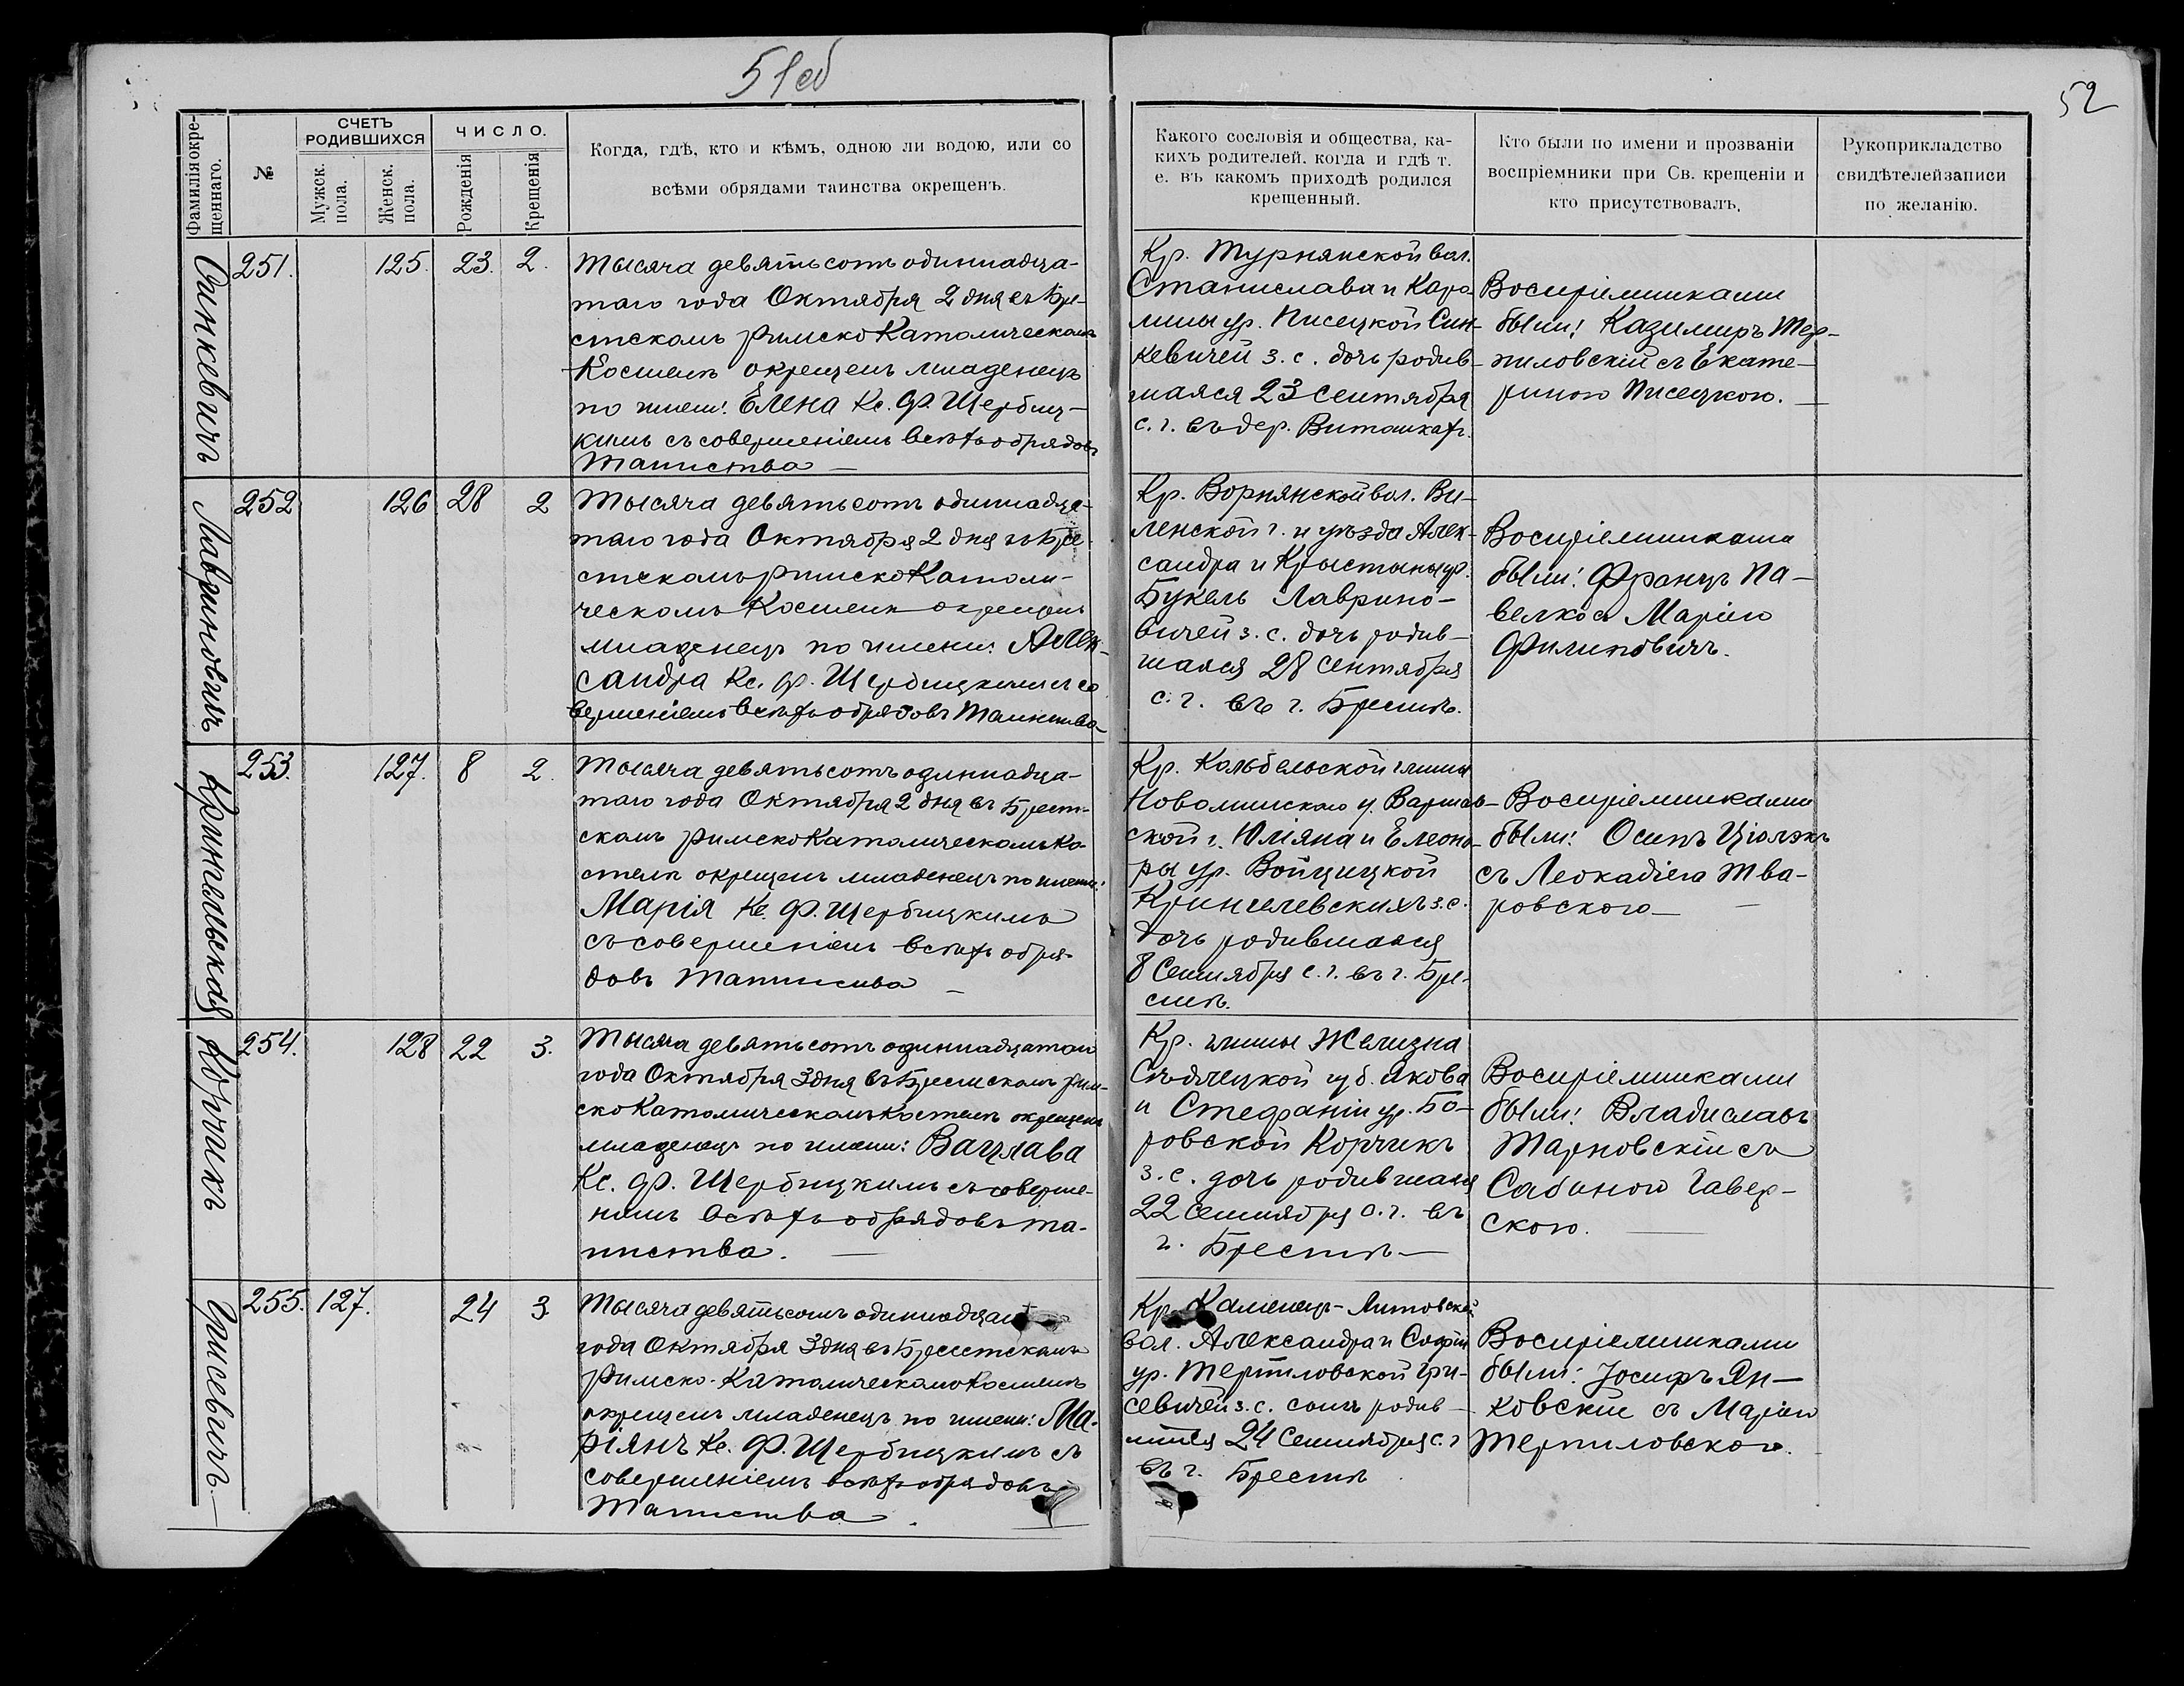 51об
52
Фамилія окре-
щеннаго.
№
СЧЕТЪ
РОДИВШИХСЯ
Мужск.
пола.
Женск.
пола.
ЧИСЛО.
Рожденія
Крещенія
Когда, гдѣ, кто и кѣмъ, одною ли водою, или со
всѣми обрядами таинства окрещенъ.
Какого сословія и общества, ка-
кихъ родителей. когда и гдѣ т.
е. въ какомъ приходѣ родился
крещенный.
Кто были по имени и прозваніи
воспріемники при Св. крещеніи и
кто присутствовалъ.
Рукоприкладство
свидѣтелей записи
по желанію.
Синкевичъ
251.
125.
23.
2.
Тысяча девятьсотъ одиннадца-
таго года Октября 2 дня въ Бре-
стскомъ Римско Католическомъ
Костелѣ окрещенъ младенецъ
по имени: Елена Кс. Ф. Щербиц-
кимъ съ совершеніемъ всѣхъ обрядовъ
Таинства —
Кр. Турнянской вол.
Станислава и Каро-
лины ур. Писецкой Син-
кевичей з. с. дочь родив-
шаяся 23 Сентября
с. г. въ дер. Виташкахъ.
Воспріемниками
были: Казимиръ Тер-
пиловскій съ Екате-
риною Писецкою. —
Лавриновичъ
252
126
28
2
Тысяча девятьсотъ одиннадца-
таго года Октября 2 дня въ Бре-
стскомъ Римско Католи-
ческомъ Костелѣ окрещенъ
младенецъ по имени: Алек-
сандра Кс. Ф. Щербицкимъ съ со-
вершеніемъ всѣхъ обрядовъ Таинства
Кр. Ворнянской вол. Ви-
ленской г. и уѣзда Алек-
сандра и Крыстыны ур.
Букель Лаврино-
вичей з. с. дочь родив-
шаяся 28 Сентября
с. г. въ г. Брестѣ.
Воспріемниками
были: Францъ Па-
велко съ Маріею
Филиповичъ.
Кринчелевская
253.
127.
8
2.
Тысяча девятьсотъ одиннадца-
таго года Октября 2 дня въ Брест-
скомъ Римско Католическомъ Ко-
стелѣ окрещенъ младенецъ по имени:
Марія Кс. Ф. Щербицкимъ
съ совершеніемъ всѣхъ обря-
довъ Таинства —
Кр. Кольбельской гмины
Новоминскаго у. Варшав-
ской г. Юліяна и Елеоно-
ры ур. Войцицкой
Кринчелевскихъ з. с.
дочь родившаяся
8 Сентября с. г. въ г. Бре-
стѣ.
Воспріемниками
были: Осипъ Ціолэкъ
съ Леокадіею Тва-
ровскою —
Корчикъ
254.
128
22
3.
Тысяча девятьсотъ одиннадцатаго
года Октября 3 дня въ Брестскомъ Рим-
ско Католическомъ Костелѣ окрещенъ
младенецъ по имени: Вацлава
Кс. Ф. Щербицкимъ съ соверше-
ніемъ всѣхъ обрядовъ та-
инства. —
Кр. гмины Желизна
Сѣдлецкой губ. Якова
и Стефаніи ур. Бо-
ровской Корчикъ
з. с. дочь родившаяся
22 Сентября с. г. въ
г. Брестѣ —
Воспріемниками
были: Владиславъ
Тарновскій съ
Сабиною Гавер-
скою. —
Грисевичъ —
255.
127.
24
3
Тысяча девятьсотъ одиннадцат
года Октября 3 дня въ Брестскомъ
Римско-Католическомъ Костелѣ
окрещенъ младенецъ по имени: Ма-
ріянъ Кс. Ф. Щербицкимъ съ
совершеніемъ всѣхъ обрядовъ
Таинства.
Кр. Каменецъ-Литовской
вол. Александра и Софіи
ур. Терпиловской Гри-
севичей з. с. сынъ родив-
шійся 24 Сентября с. г.
въ г. Брестѣ
Воспріемниками
были: Іосифъ Ян-
ковскій съ Маріею
Терпиловскою.